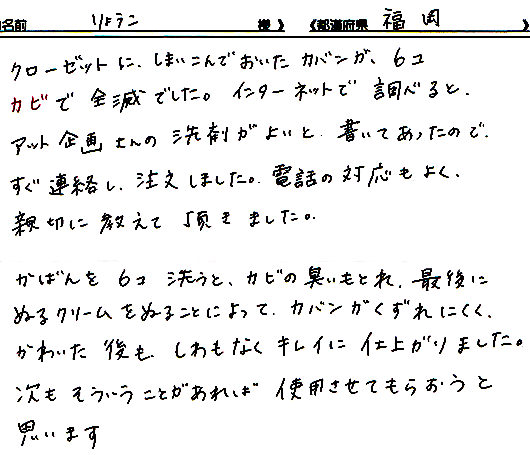 名前 りょうこ 様 》 《都道府県 福岡
クローゼットに、しまいこんでおいたカバンが、6コ
カビで全滅でした。インターネットで調べると、
アット企画さんの洗剤がよいと、書いてあったので、
すぐ連絡し、注文しました。電話の対応もよく、
親切に教えて頂きました。
かばんを6コ洗うと、カビの臭いもとれ、最後に
ぬるクリームをぬることによって、カバンがくずれにくく、
かわいた後も、しわもなくキレイに仕上がりました。
次もそういうことがあれば使用させてもらおうと
思います